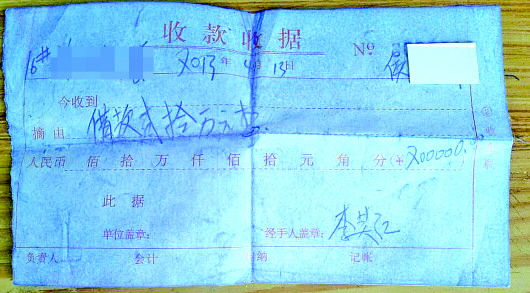 收款收据 №
16# 2013年4月13日
今收到
摘由 借款贰拾万元整
人民币 佰 拾 万 仟 佰 拾 元 角 分(¥200000.00
此据
单位盖章: 经手人盖章:
负责人 会计 纳 记帐